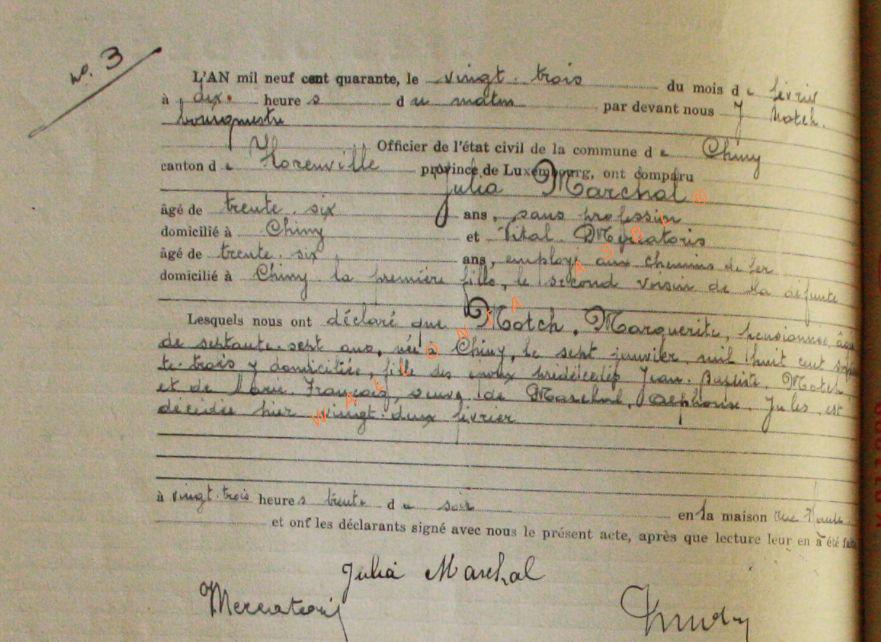 no. 3
L'AN mil neuf cent quarante, le vingt-trois du mois de février
à dix heures du matin par devant nous J Motch.
bourgmestre
Officier de l'état civil de la commune de Chiny
canton de Florenville province de Luxembourg, ont comparu
Julia Marchal
âgé de trente-six ans, sans profession
domicilié à Chiny et Vital Mercatoris
âgé de trente-six ans, employé aux chemins de fer
domicilié à Chiny la première fille, le second voisin de la défunte
Lesquels nous ont déclaré que Motch, Marguerite, pensionnée, âgée
de septante-sept ans, née à Chiny, le sept janvier, mil huit cent
te-trois y domiciliée, fille des époux prédécédés Jean-Baptiste, Motch
et de Marie François, veuve de Marchal, Alphonse, Jules, est
décédée hier vingt-deux février
à vingt-trois heures trente du soir en la maison rue Haute
et ont les déclarants signé avec nous le présent acte, après que lecture leur en a été faite
Julia Marchal
Mercatoris
WALLONIA ASBL ©